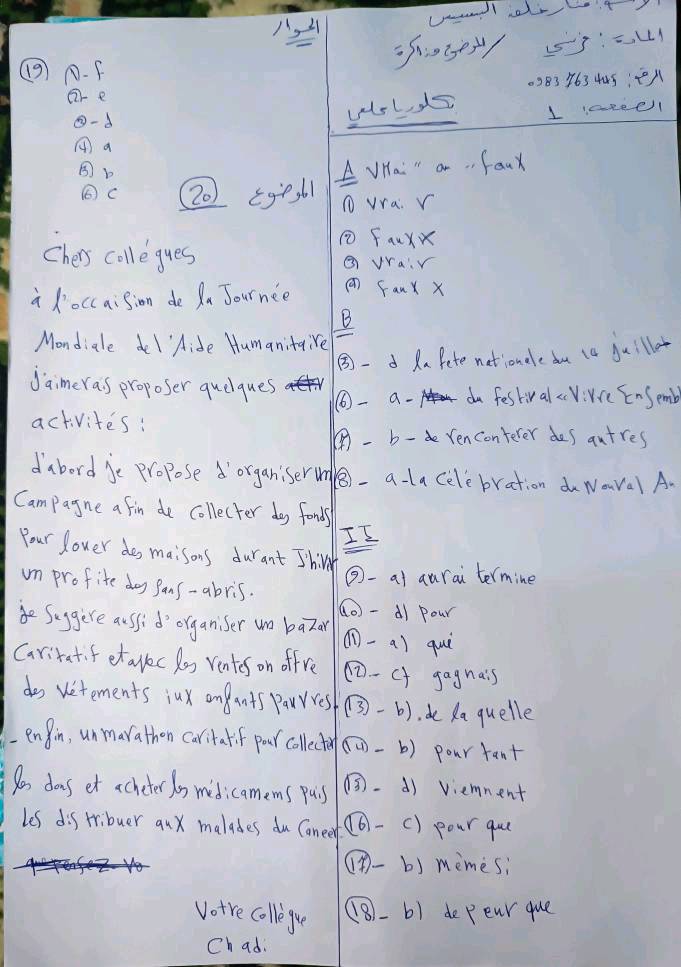 المادة: فرنسي / الموضوع: مذاكرة
الرقم: 0983763445
بكلوريا علمي
الصفحة: 1
A Vrai" ou "faux
① vrai ✓
② Faux x
③ vrai ✓
④ Faux x
B
⑤ - d la fete nationale du 14 juillet
⑥ - a - du festival «Vivre Ensemb
⑦ - b - de renconterer des autres
⑧ - a - La célébration du Nouval An
II
⑨ - a) aurai termine
⑩ - d) pour
⑪ - a) qui
⑫ - c) gagnais
⑬ - b). de la quelle
⑭ - b) pour tant
⑮ - d) viennent
⑯ - c) pour que
⑰ - b) mêmes;
⑱ - b) de peur que
الحوار
⑲ ① - f
② - e
③ - d
④ a
⑤ b
⑥ c
⑳ الموضوع
Chers collégues
à l'occaision de la Journée
Mondiale del'Aide Humanitaire
J'aimerais proposer quelques
activités:
d'abord je propose d'organiser un
Campagne afin de collecter des fonds
Pour louer des maisons durant l'hiver
un profite des sans-abris.
je suggère aussi d'organiser un bazar
Caritatif et avec les ventes on offre
des vêtements aux enfants pauvres.
- enfin, un marathon caritatif pour collecter
les dons et acheter les médicaments puis
les distribuer aux malades du Cancer
Votre collègue
Chadi